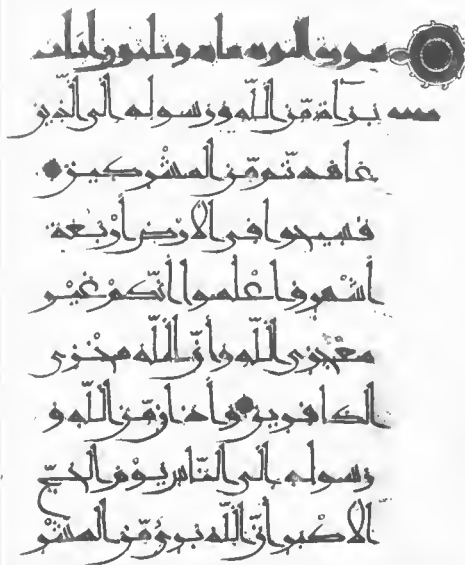 سورة التوبة مايه وثلثون ايات
بَرَآة مّن اللّه ورسوله إلى الّذين
عاهدتّم مّن المشْركين
فسيحوا في الأرْض أرْبعة
أشْهر واعْلموا أنّكمْ غيْر
معْجزي اللّه وأنّ اللّه مخْزي
الكافرين وأذان مّن اللّه و
رسوله إلى النّاس يوْم الحجّ
الأكْبر أنّ اللّه بريء مّن المشْر